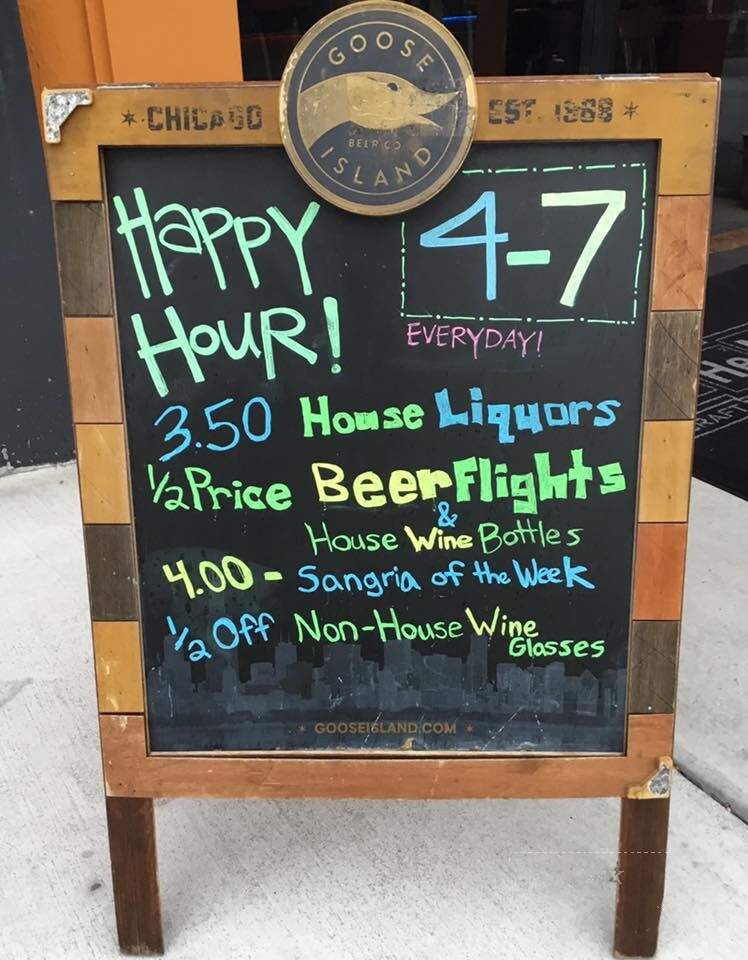 GOOSE
BEER CO
ISLAND
CHICAGO
EST. 1988
HAPPY
HOUR!
4-7
EVERYDAY!
3.50 House Liquors
1/2 Price Beer Flights
&
House Wine Bottles
4.00 - Sangria of the Week
1/2 Off Non-House Wine
Glasses
GOOSEISLAND.COM